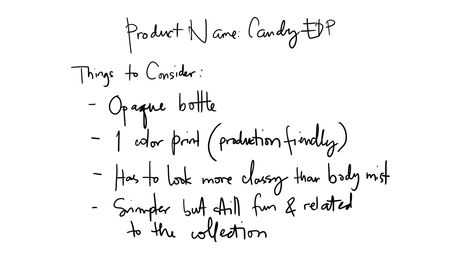 Product Name: Candy EDP
Things to Consider:
- Opaque bottle
- 1 color print (production friendly)
- Has to look more classy than body mist
- Simpler but still fun & related
to the collection